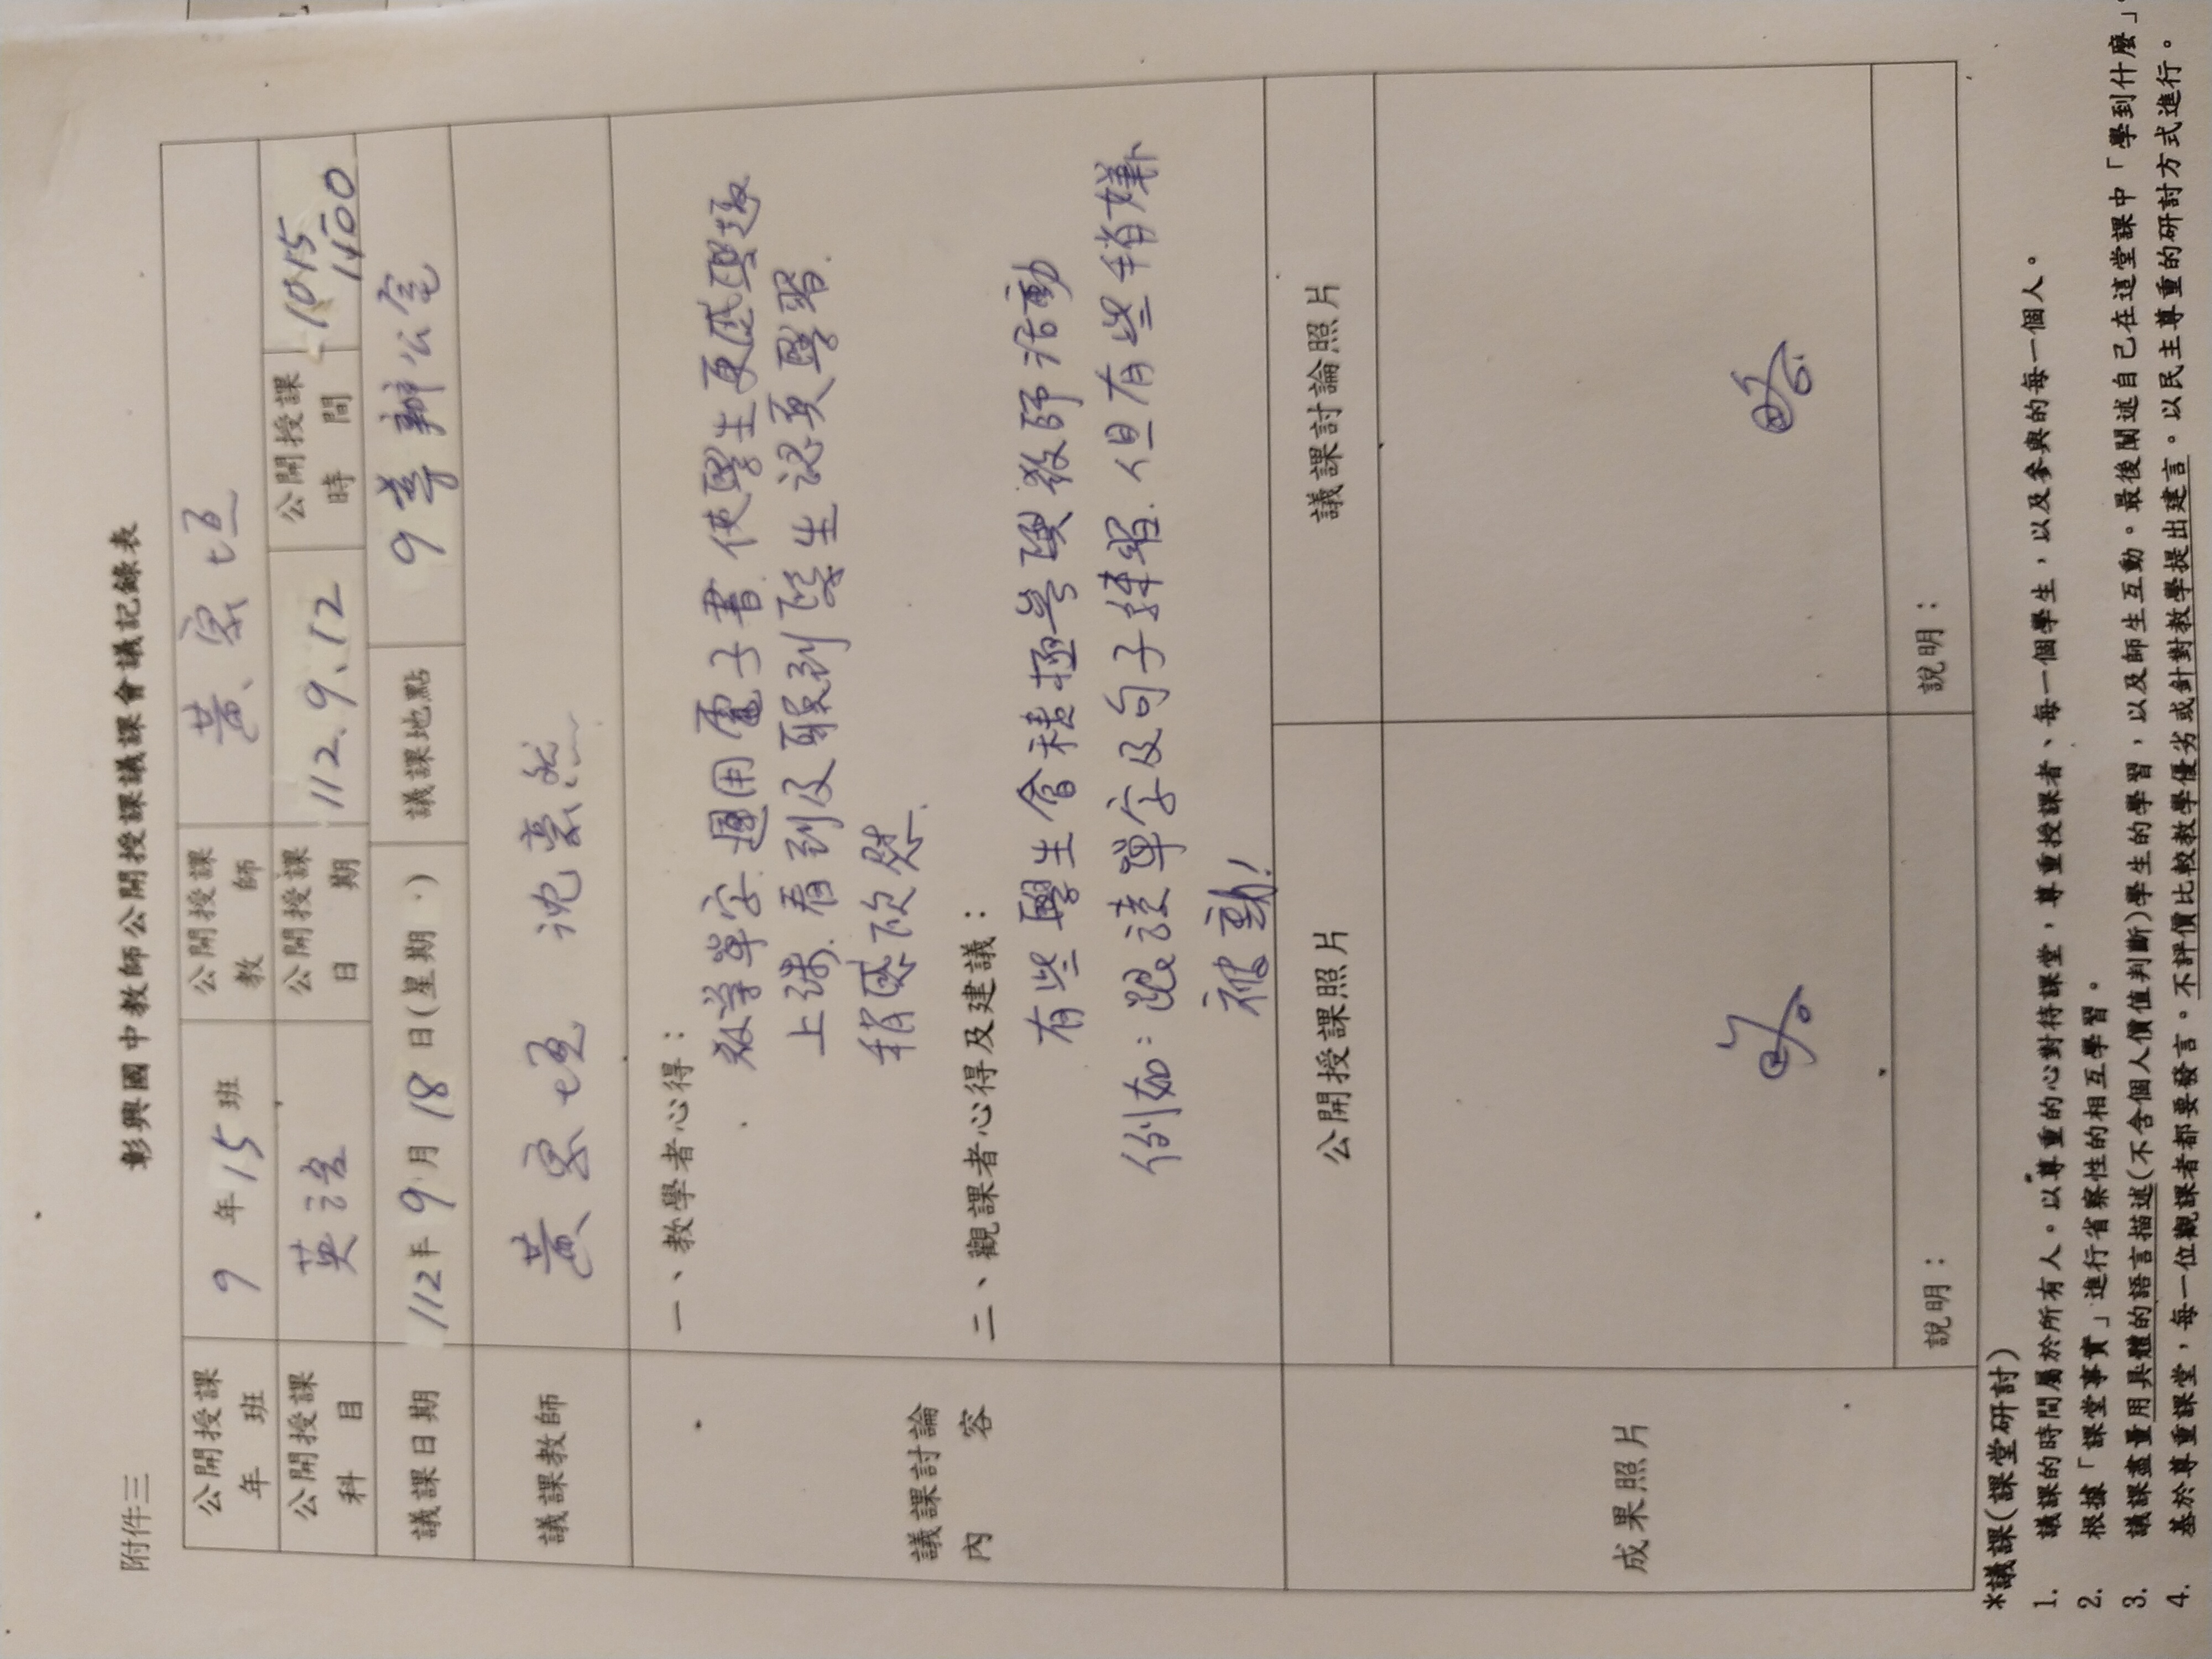 附件三
彰興國中教師公開授課議課會議記錄表
公開授課年班 9 年 15 班 公開授課教師 黃 垣
公開授課科目 英語 公開授課日期 112.9.12 公開授課時間 1015
1100
議課日期 112年 9 月 18 日(星期 ) 議課地點 9 導辦公室
議課教師 黃 垣 沈豪然
議課討論內容
一、教學者心得：
教導單字.運用電子書.使學生更感興趣
上課.看到及聽到學生認真學習.
稍感欣慰.
二、觀課者心得及建議：
有些學生會積極參與教師活動
例如：跟讀單字及句子練習.但有些稍嫌
被動!
成果照片
公開授課照片 議課討論照片
略. 略.
說明： 說明：
*議課(課堂研討)
1. 議課的時間屬於所有人。以尊重的心對待課堂，尊重授課者、每一個學生，以及參與的每一個人。
2. 根據「課堂事實」進行省察性的相互學習。
3. 議課盡量用具體的語言描述(不含個人價值判斷)學生的學習，以及師生互動。最後闡述自己在這堂課中「學到什麼」。
4. 基於尊重課堂，每一位觀課者都要發言。不評價比較教學優劣或針對教學提出建言。以民主尊重的研討方式進行。